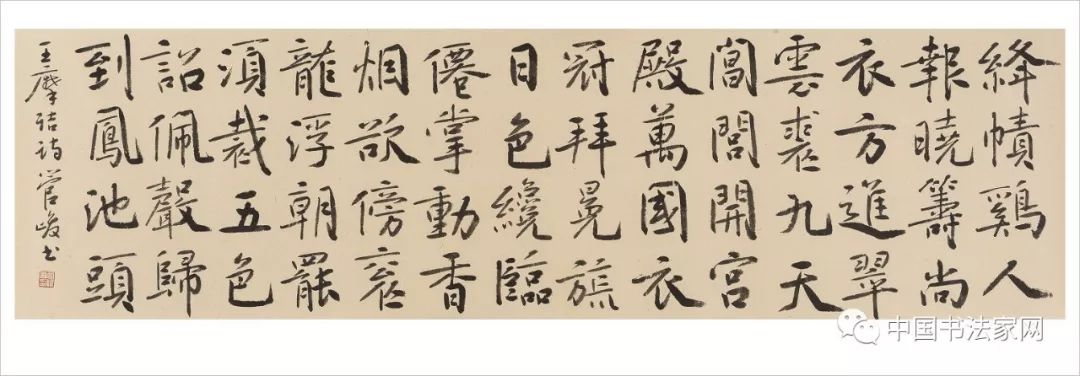 絳幘鷄人
報曉籌尚
衣方進翠
雲裘九天
閶闔開宮
殿萬國衣
冠拜冕旒
日色纔臨
僊掌動香
烟欲傍袞
龍浮朝罷
須裁五色
詔佩聲歸
到鳳池頭
王摩詰詩管峻书
中国书法家网